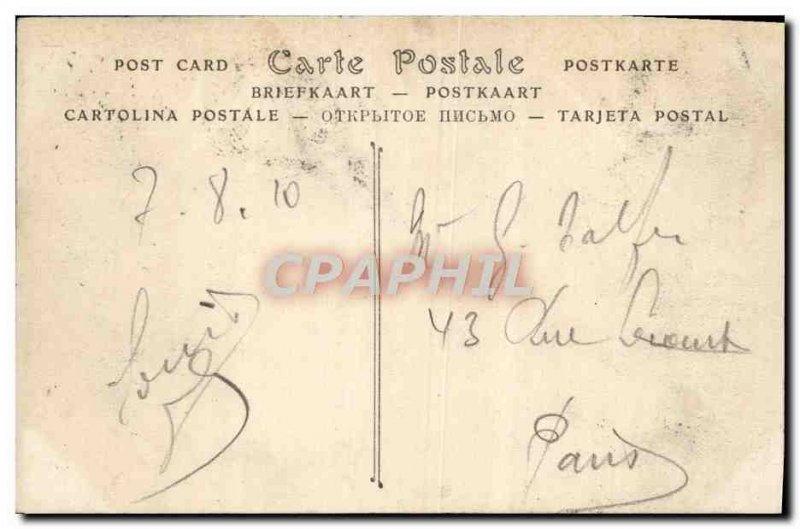 POST CARD Carte Postale POSTKARTE
BRIEFKAART — POSTKAART
CARTOLINA POSTALE — ОТКРЫТОЕ ПИСЬМО — TARJETA POSTAL
7.8.10
CPAPHIL
Louis
Mr G.
43 Rue
Paris